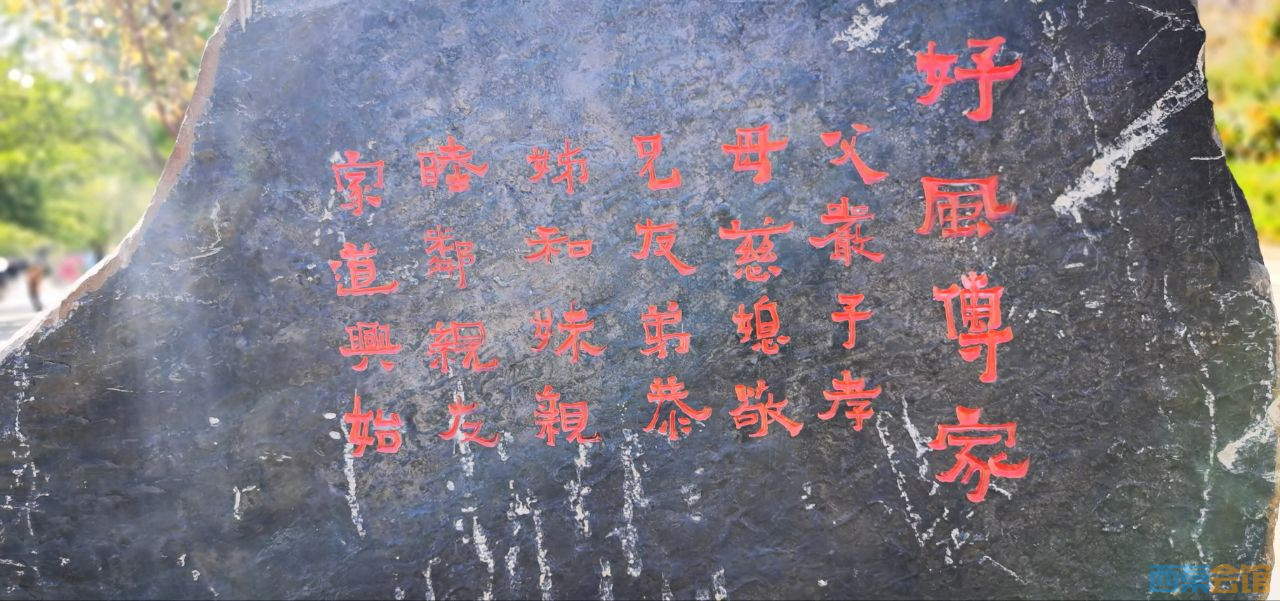 好風傳家
父嚴子孝
母慈媳敬
兄友弟恭
姊和妹親
睦鄰親友
家道興始
西祠会馆